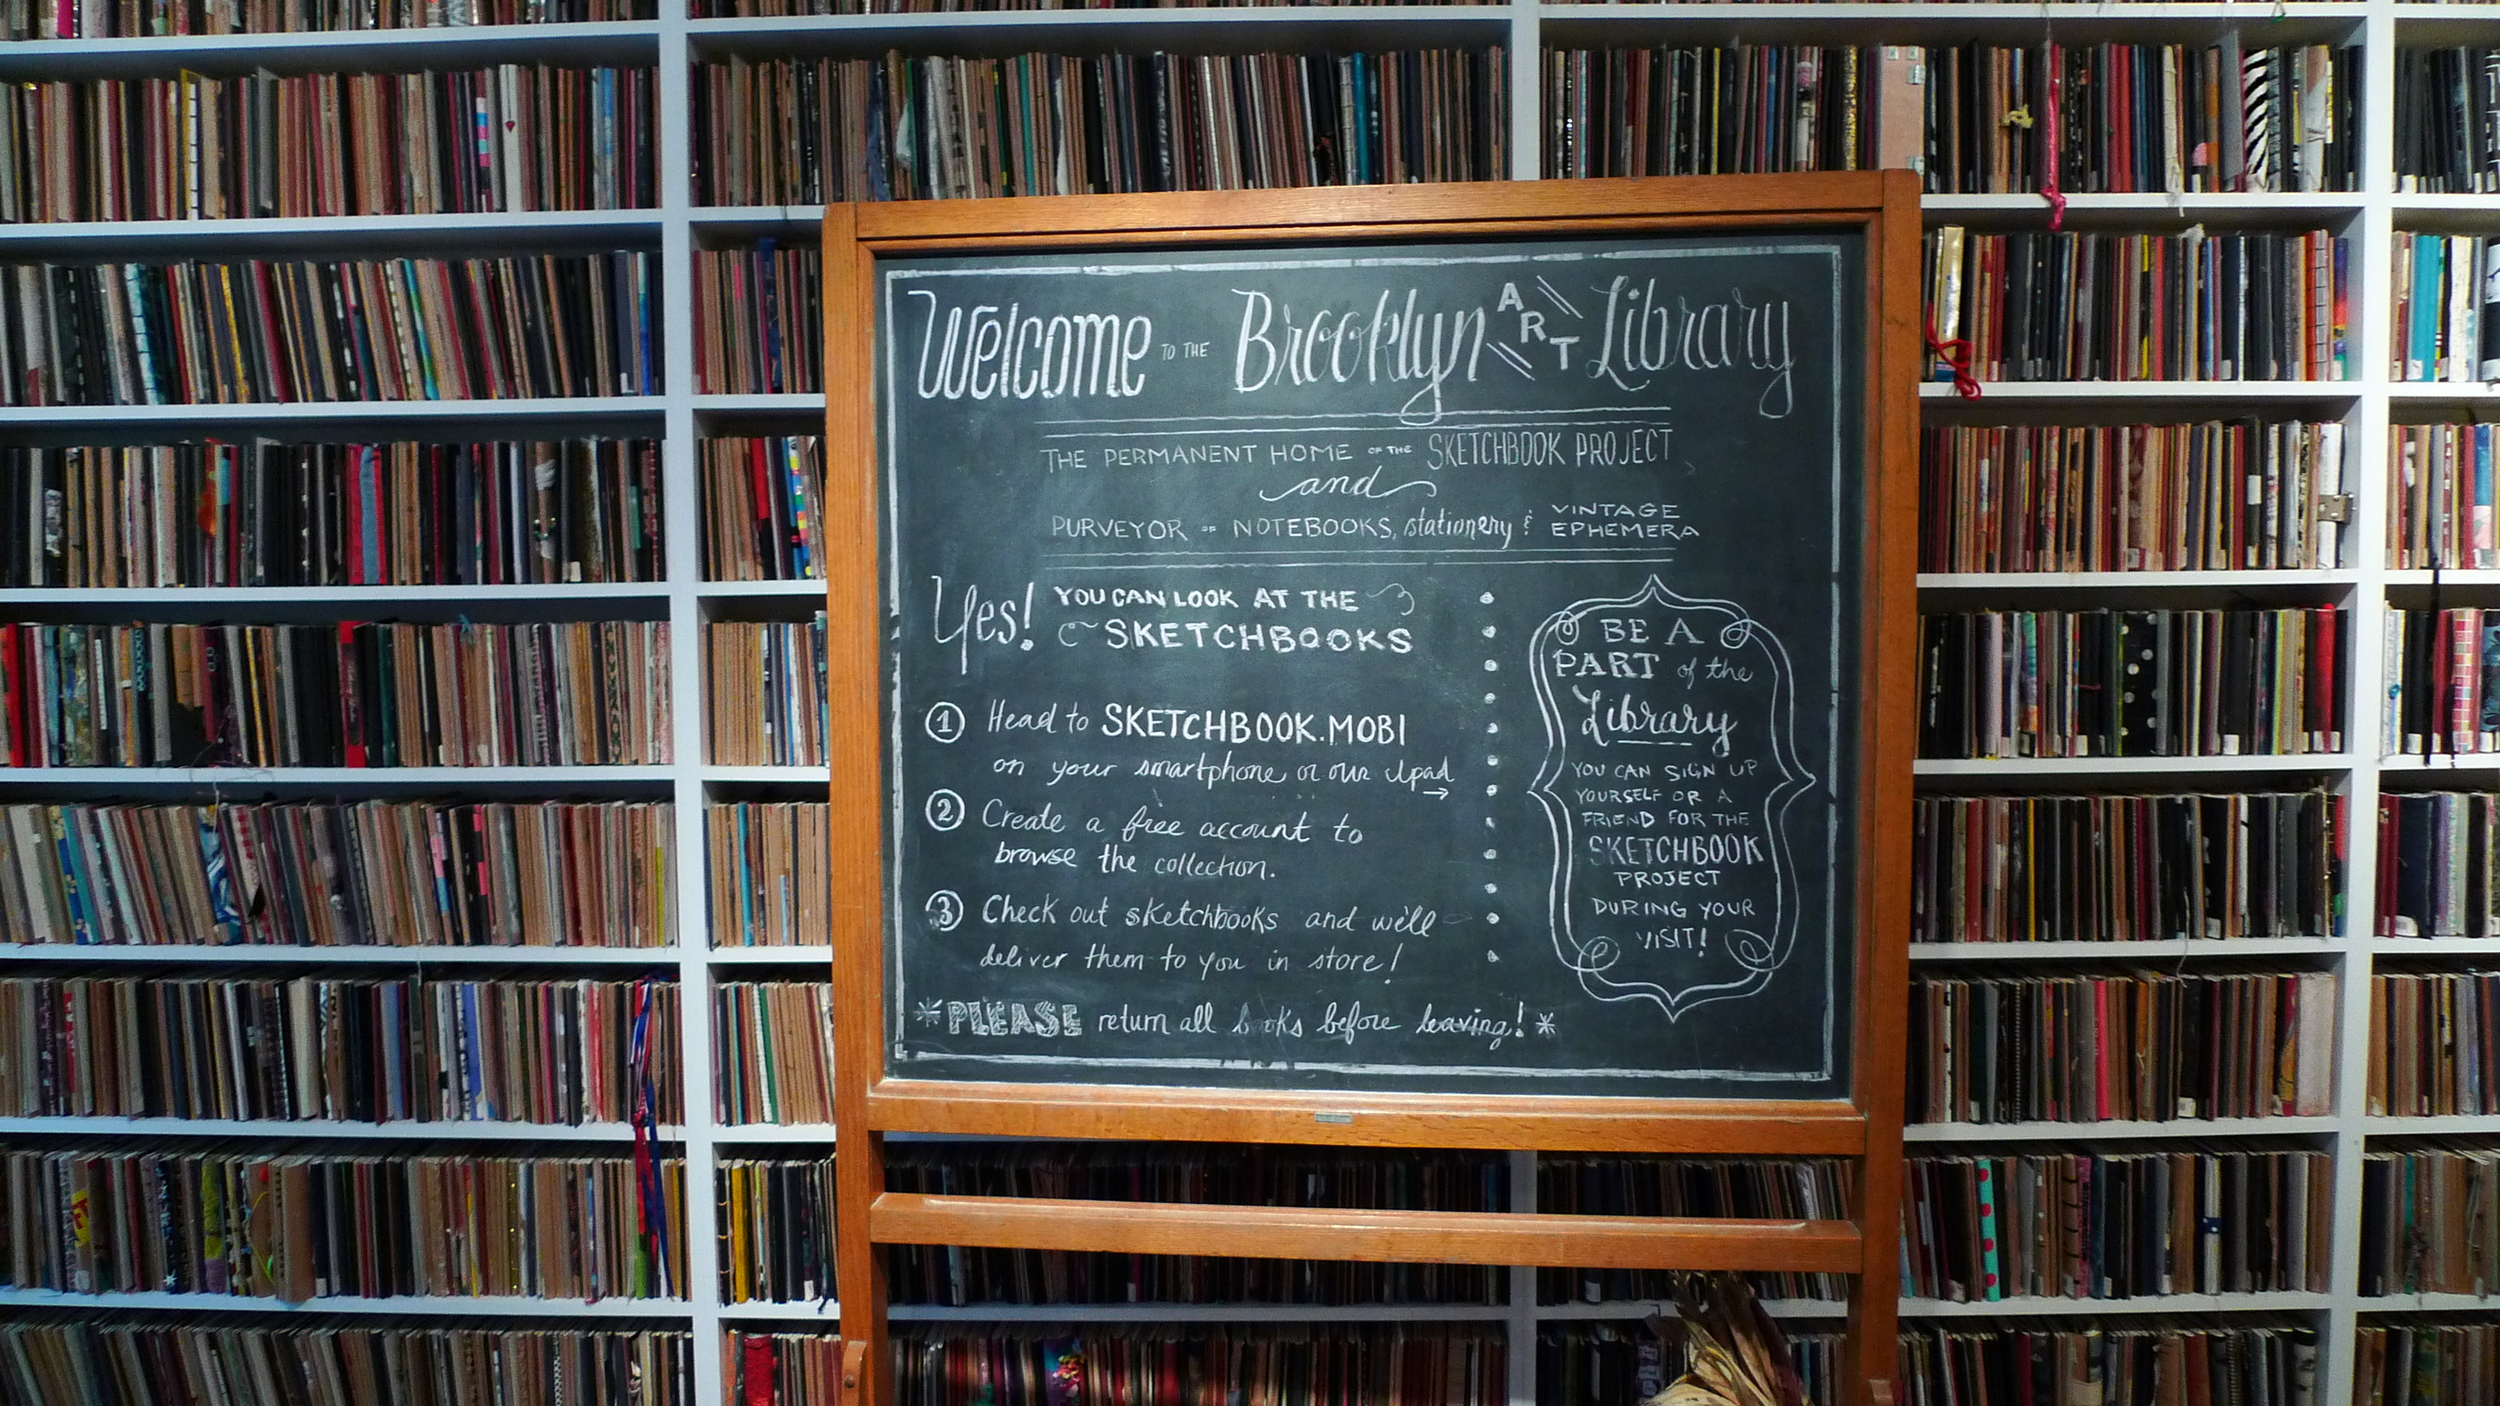 Welcome TO THE Brooklyn ART Library
THE PERMANENT HOME OF THE SKETCHBOOK PROJECT
and
PURVEYOR OF NOTEBOOKS, stationery & VINTAGE EPHEMERA
Yes! YOU CAN LOOK AT THE
SKETCHBOOKS
1 Head to SKETCHBOOK.MOBI
on your smartphone or our Ipad →
2 Create a free account to
browse the collection.
3 Check out sketchbooks and we'll
deliver them to you in store!
*PLEASE return all books before leaving! *
BE A
PART of the
Library
YOU CAN SIGN UP
YOURSELF OR A
FRIEND FOR THE
SKETCHBOOK
PROJECT
DURING YOUR
VISIT!